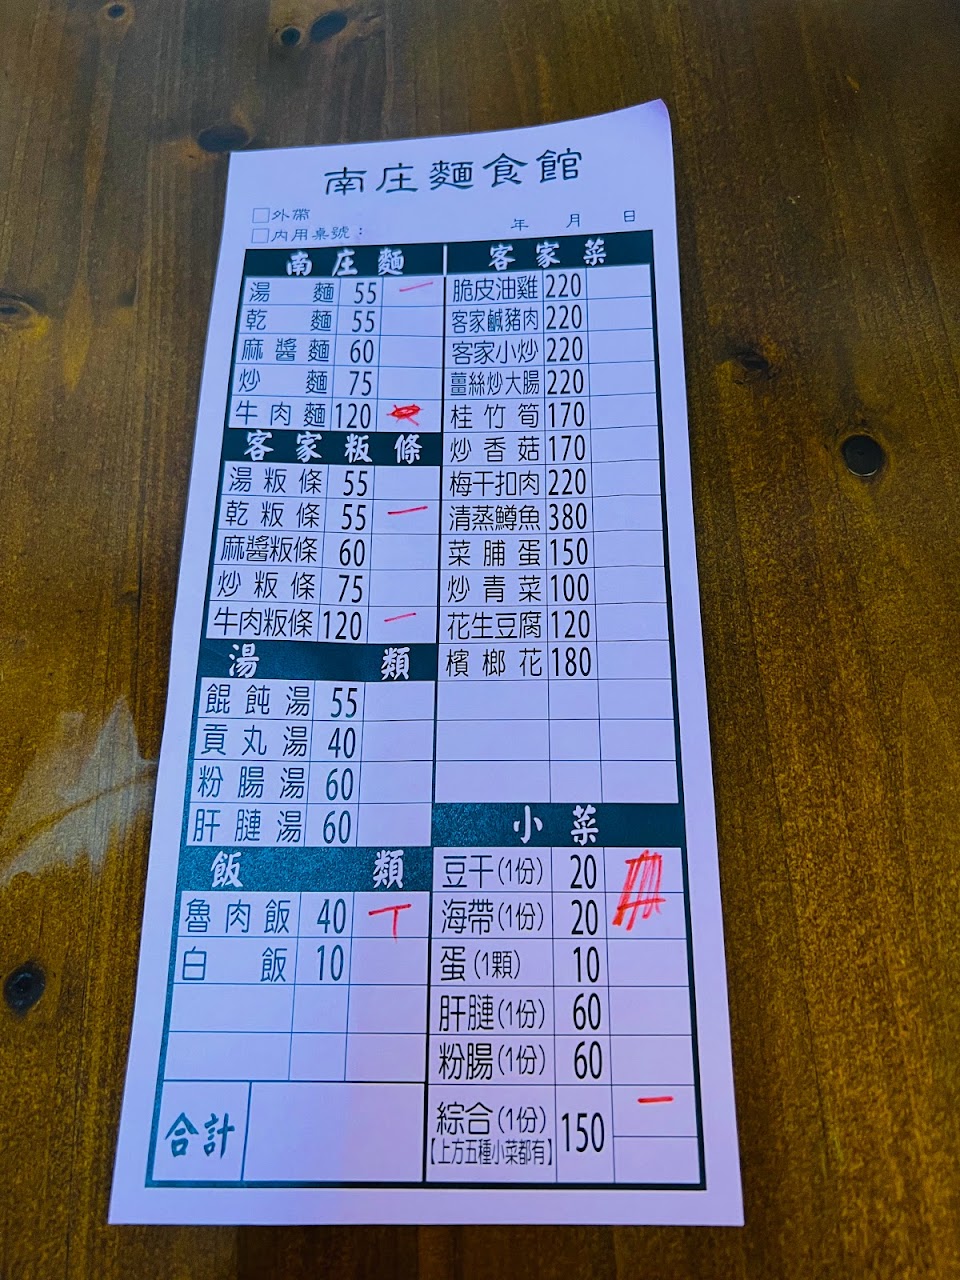 南庄麵食館
□外帶
□內用桌號： 年 月 日
南庄麵
湯麵 55 一
乾麵 55
麻醬麵 60
炒麵 75
牛肉麵 120
客家粄條
湯粄條 55
乾粄條 55 一
麻醬粄條 60
炒粄條 75
牛肉粄條 120 一
湯類
餛飩湯 55
貢丸湯 40
粉腸湯 60
肝腱湯 60
飯類
魯肉飯 40 丅
白飯 10
合計
客家菜
脆皮油雞 220
客家鹹豬肉 220
客家小炒 220
薑絲炒大腸 220
桂竹筍 170
炒香菇 170
梅干扣肉 220
清蒸鱒魚 380
菜脯蛋 150
炒青菜 100
花生豆腐 120
檳榔花 180
小菜
豆干(1份) 20
海帶(1份) 20
蛋(1顆) 10
肝腱(1份) 60
粉腸(1份) 60
綜合(1份) 150 一
【上方五種小菜都有】